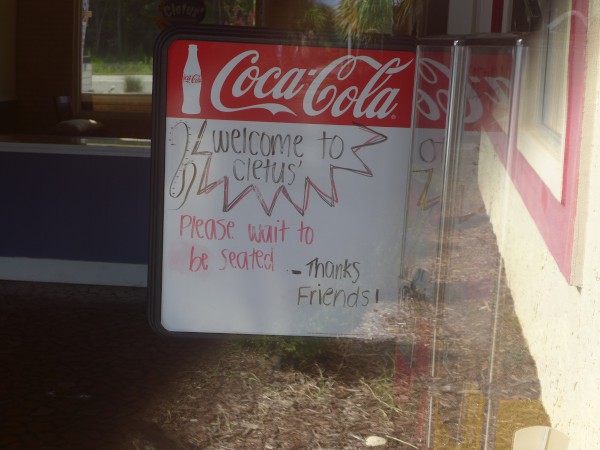 Cletus'
Coca-Cola
welcome to
cletus'
Please wait to
be seated - Thanks
Friends!